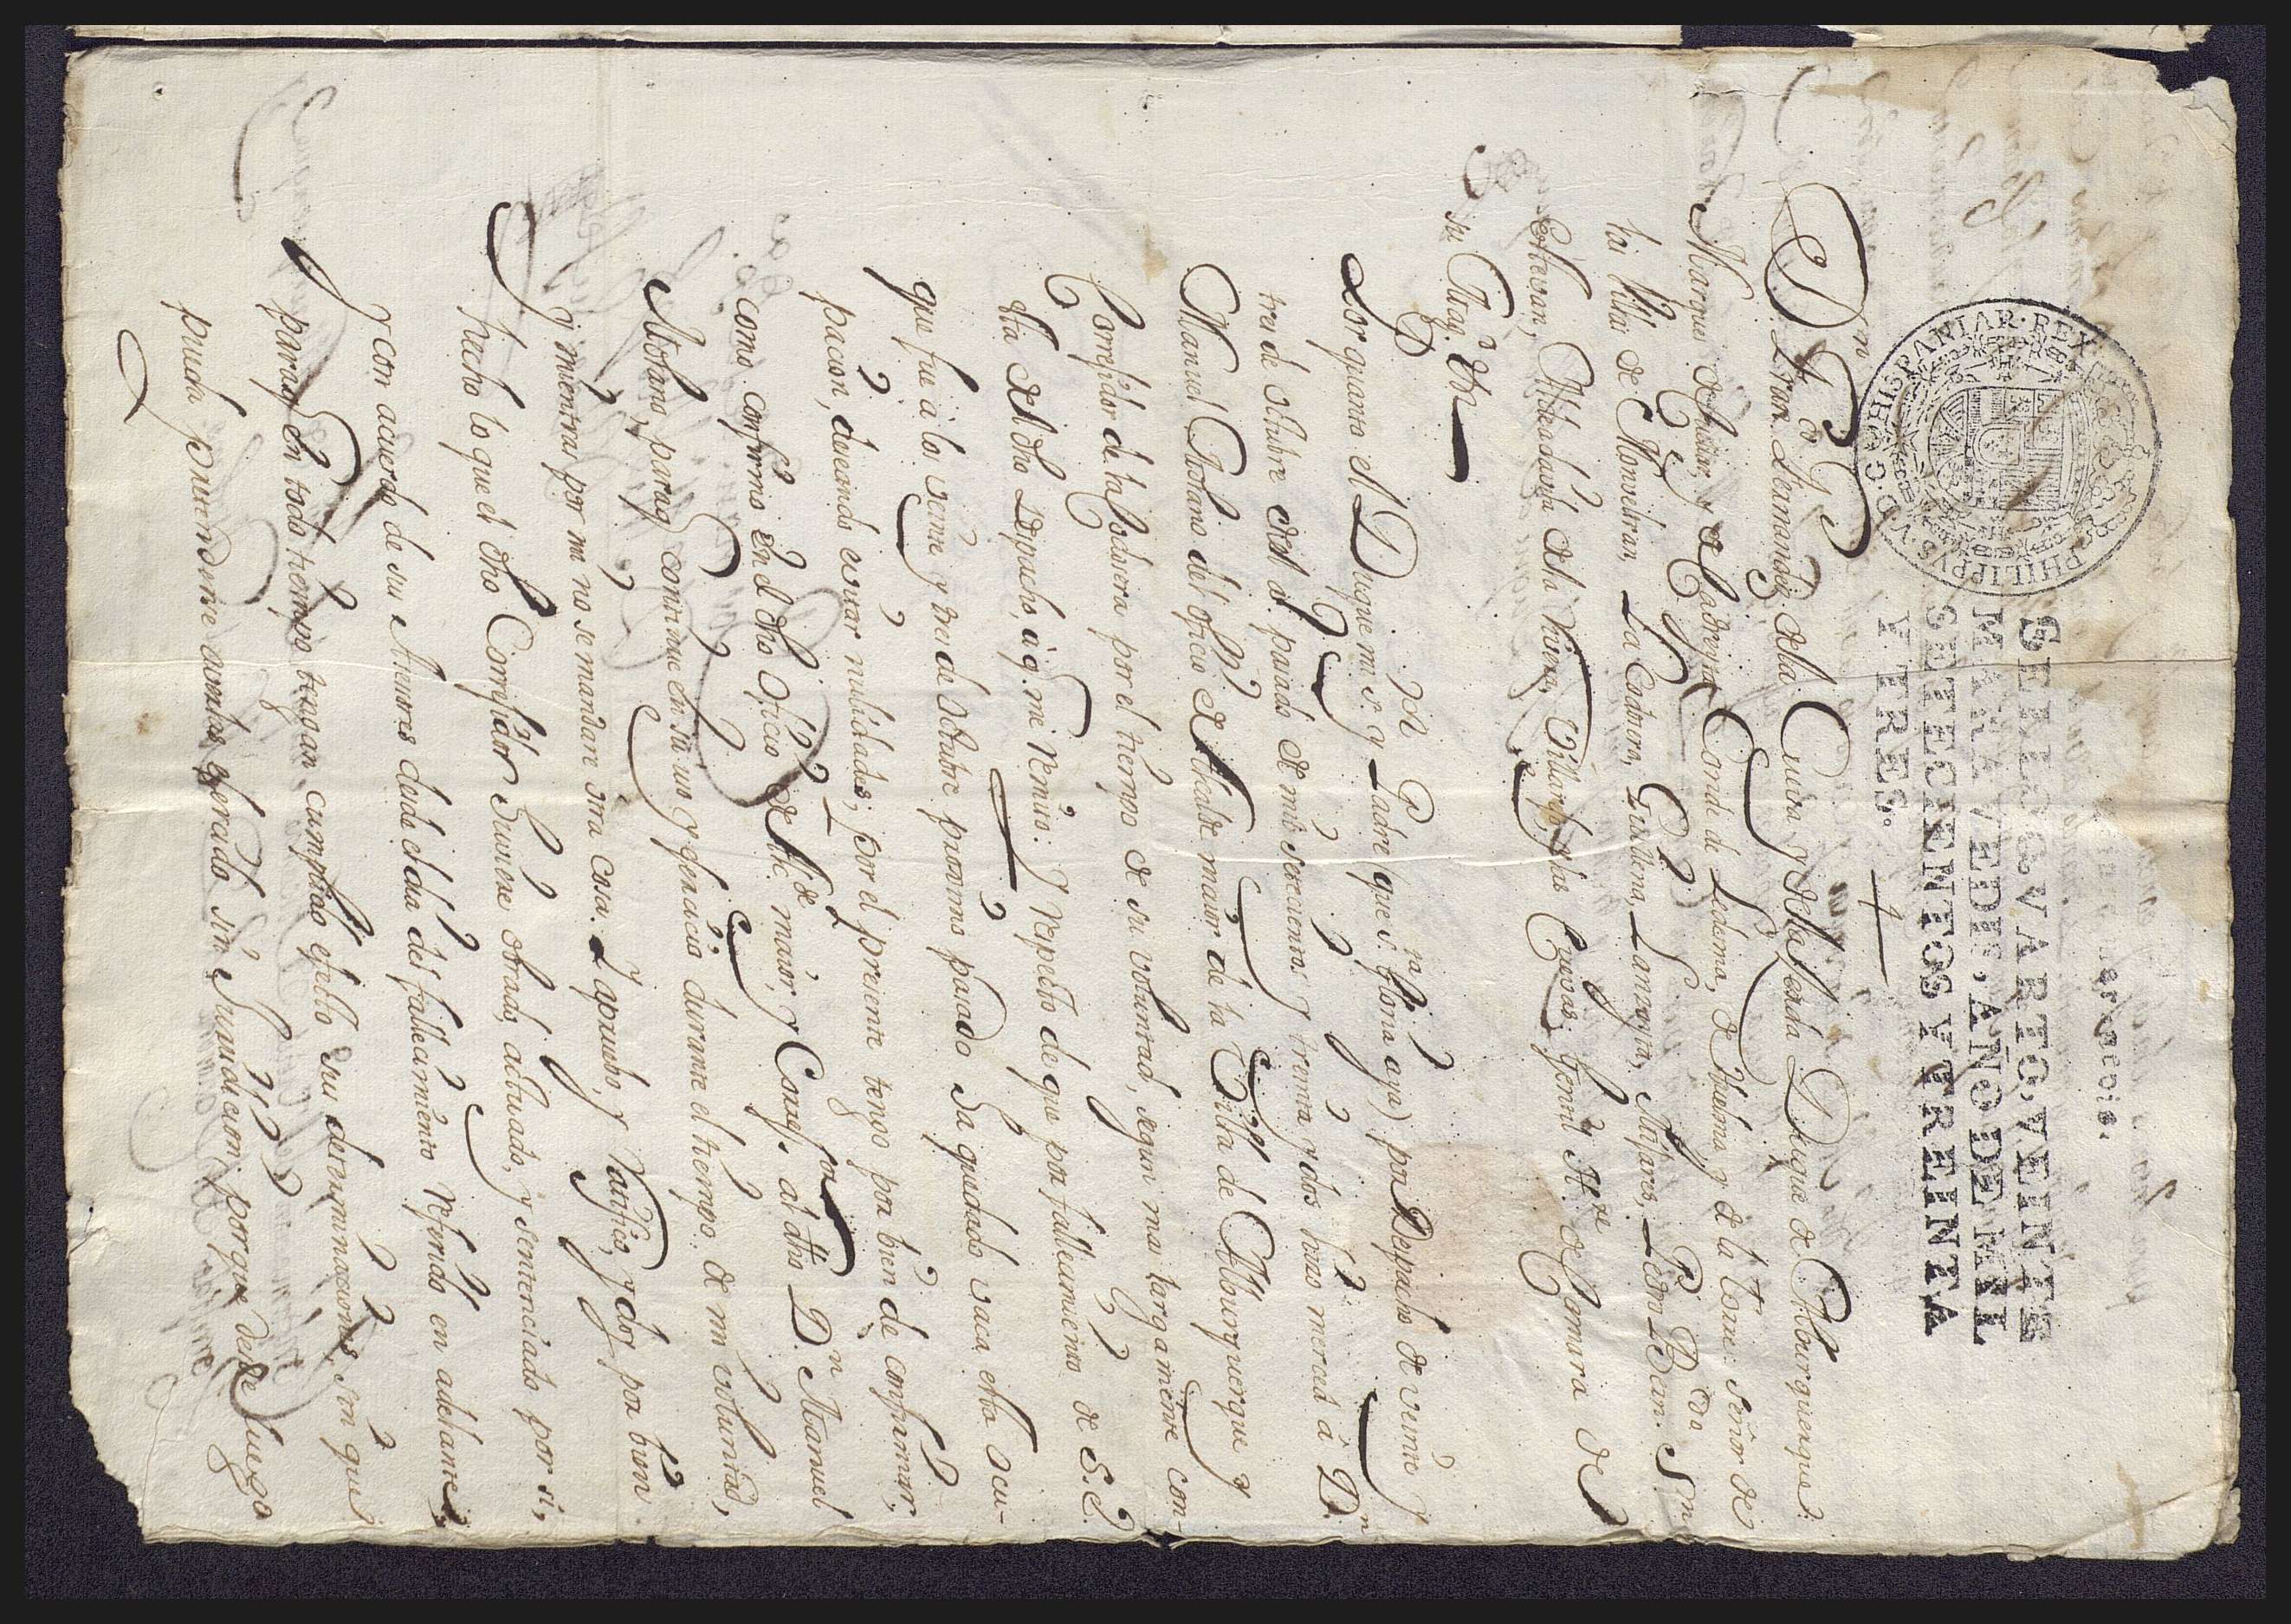 PHILIPPVS·V·D·G·HISPANIAR·REX
SELLO QVARTO, VEINTE
MARAVEDIS, AÑO DE MIL
SETECIENTOS Y TREINTA
Y TRES.
Dn Fran.co Fernandez dela Cueva, y dela Cerda Duque de Alburquerque:
Marques de Cuellar, y de Cadreyta, Conde de Ledesma, de Huelma y de la Torre: señor de
las Villas de Monveltran, La Codosera, Guillena, Lanzayta, Mijares, Pedro Bern.do S.n
Estevan, Aldeadavila dela Rivera, Villarejo, y las Cuevas; Gentil H.re de Camara de
su Mag.d &a
Por quanto el Duque mi s.r y Padre (que s.ta Gloria aya) por Despacho de veinte y
tres de octubre del a.o pasado de mil setecientos y treinta y dos hizo merced a D.n
Manuel Molano del oficio de Alcalde maior de la Villa de Alburquerque y
Corregidor de la Codosera por el tiempo de su voluntad, segun mas largamente con-
sta del dho Despacho, a q. me remito: Y respecto de que por fallecimiento de S.E.
que fue a los veinte y tres de octubre proximo pasado ha quedado vaca esta ocu-
pacion, deseando escusar nulidades; por el presente tengo por bien de confirmar,
como confirmo en el dho oficio de Alc.de maior, y Correx.or al dho D.n Manuel
Molano, para q. continue en su uso y exercicio durante el tiempo de mi voluntad,
y mientras por mi no se mandare otra cosa. Y apruebo, y ratifico, y doy por bien
hecho lo que el dho Corregidor huviere obrado, actuado, y sentenciado por si,
y con acuerdo de sus Asesores desde el dia del fallecimiento referido en adelante;
para q. en todo tiempo tengan cumplido efecto sus determinaciones, sin que
pueda pretenderse averlas operado sin Jurisdicion; porque desde luego